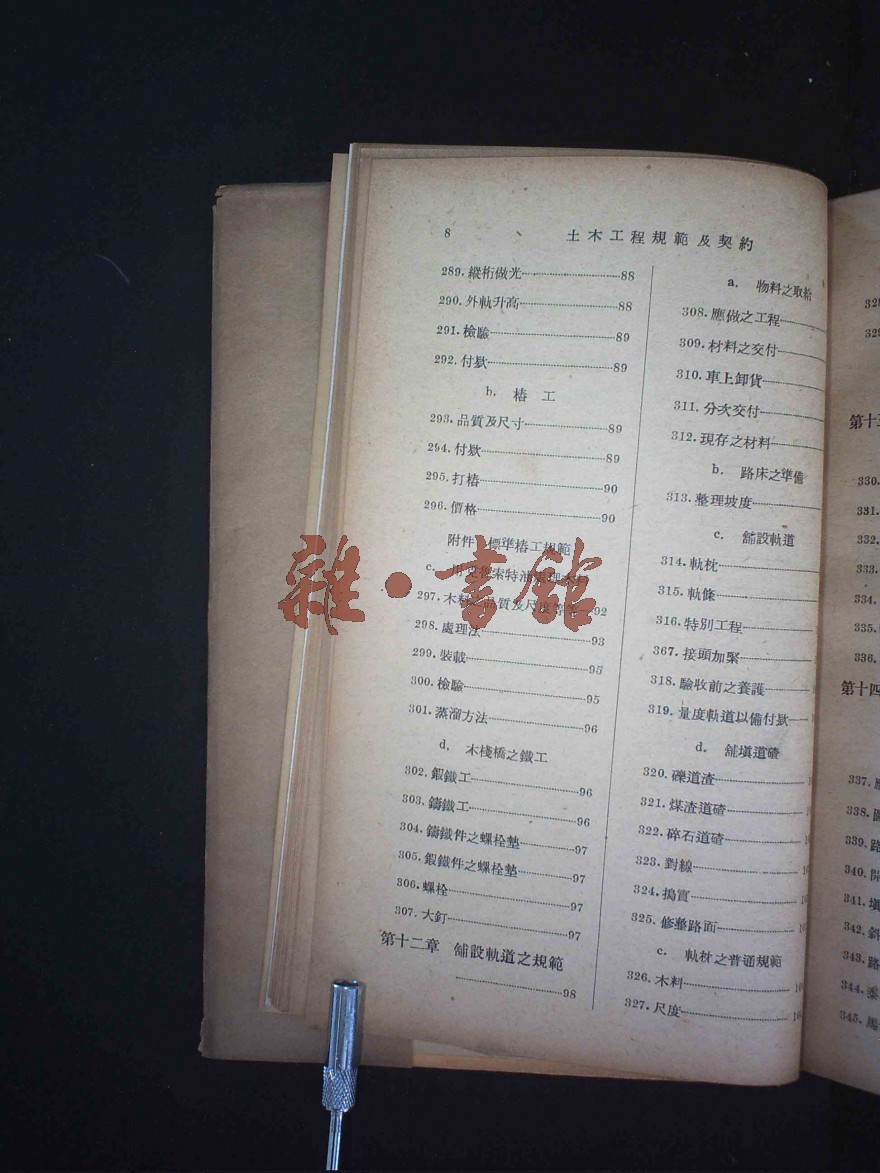 8 土木工程規範及契約
289.縱桁做光 88
290.外軌升高 88
291.檢驗 89
292.付欵 89
b. 樁工
293.品質及尺寸 89
294.付欵 89
295.打樁 90
296.價格 90
附件 標準樁工規範
c. 用 索特油 理木料
297.木料之品質及尺度等 92
298.處理法 93
299.裝載 95
300.檢驗 95
301.蒸溜方法 96
d. 木棧橋之鐵工
302.鍜鐵工 96
303.鑄鐵工 96
304.鑄鐵件之螺栓墊 97
305.鍜鐵件之螺栓墊 97
306.螺栓 97
307.大釘 97
第十二章 舖設軌道之規範
98
a. 物料之取給
308.應做之工程
309.材料之交付
310.車上卸貨
311.分次交付
312.現存之材料
b. 路床之準備
313.整理坡度
c. 舖設軌道
314.軌枕
315.軌條
316.特別工程
367.接頭加緊
318.驗收前之養護
319.量度軌道以備付欵
d. 舖塡道碴
320.礫道渣
321.煤渣道碴
322.碎石道碴
323.對線
324.搗實
325.修整路面
c. 軌枕之普通規範
326.木料
327.尺度
330.
331.
332.
333.
334.
335.
336.
第十四
337.
338.
339.路
340.開
341.塡
342.斜
343.路
344.
345.
雜·書館